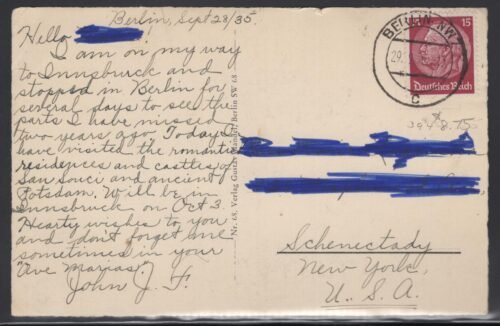 Berlin, Sept 28/35.
Hello
I am on my way
to Innsbruck and
stopped in Berlin for
several days to see the
parts I have missed
two years ago. Today I
have visited the romantic
residences and castles of
San Souci and ancient
Potsdam. Will be in
Innsbruck on Oct 3.
Hearty wishes to you
and don't forget me
sometimes in your
"Ave Marias".
John J. F.
Nr. 68. Verlag Gustav Berlin SW 68
BERLIN NW
29.
c
15
Deutsches Reich
Schenectady
New York,
U. S. A.